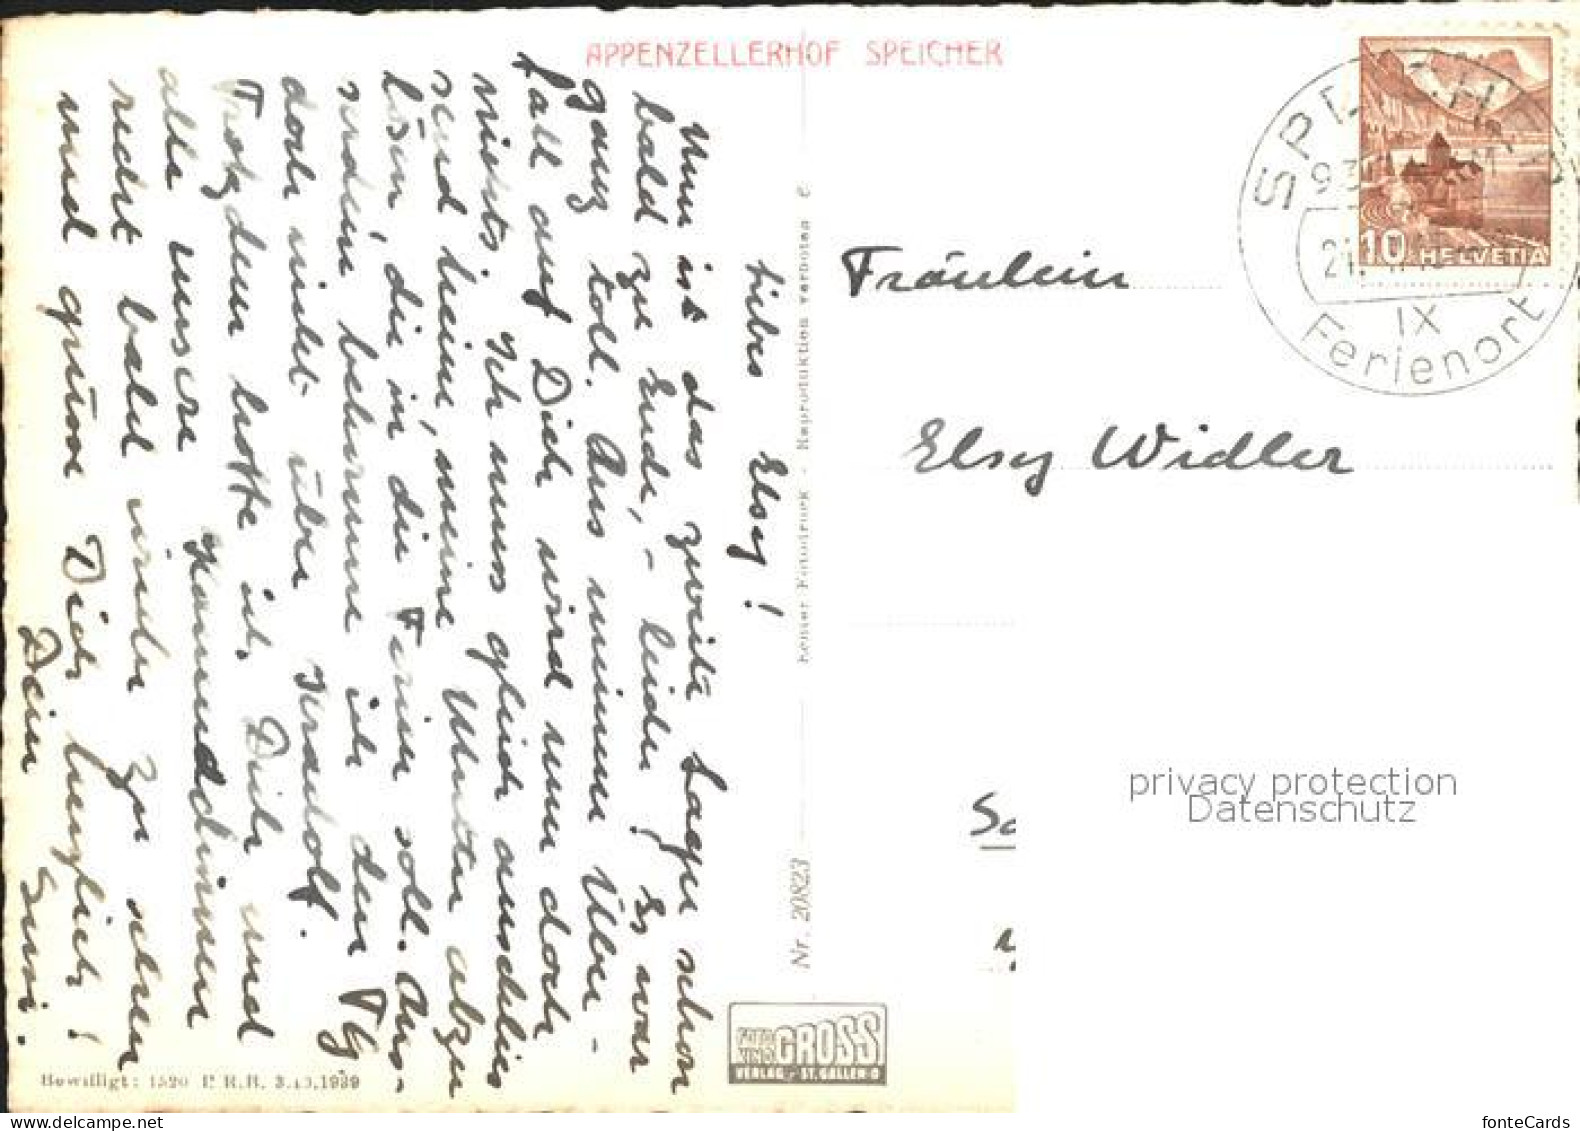 APPENZELLERHOF SPEICHER
Liebes Elsy!
Nun ist das zweite Lager schon
bald zu Ende, - leider! Es war
ganz toll. Aus meinem Über-
fall auf Dich wird nun doch
nichts. Ich muss gleich anschlies
send heim, meine Mutter abzu
lösen, die in die Ferien soll. Aus-
serdem bekomme ich den FG
doch nicht über
Trotzdem hoffe ich, Dich und
alle unsere Kamerädinnen
recht bald wieder zu sehen
und grüsse Dich herzlich!
Dein Susi.
Nr. 20823
Fotodruck - Reproduktion verboten
FOTO GROSS
VERLAG ST. GALLEN
Bewilligt: 1520 P. R. B. 3.10.1939
SPEICHER
IX
Ferienort
10 HELVETIA
Fräulein
Elsy Widler
privacy protection
Datenschutz
fonteCards